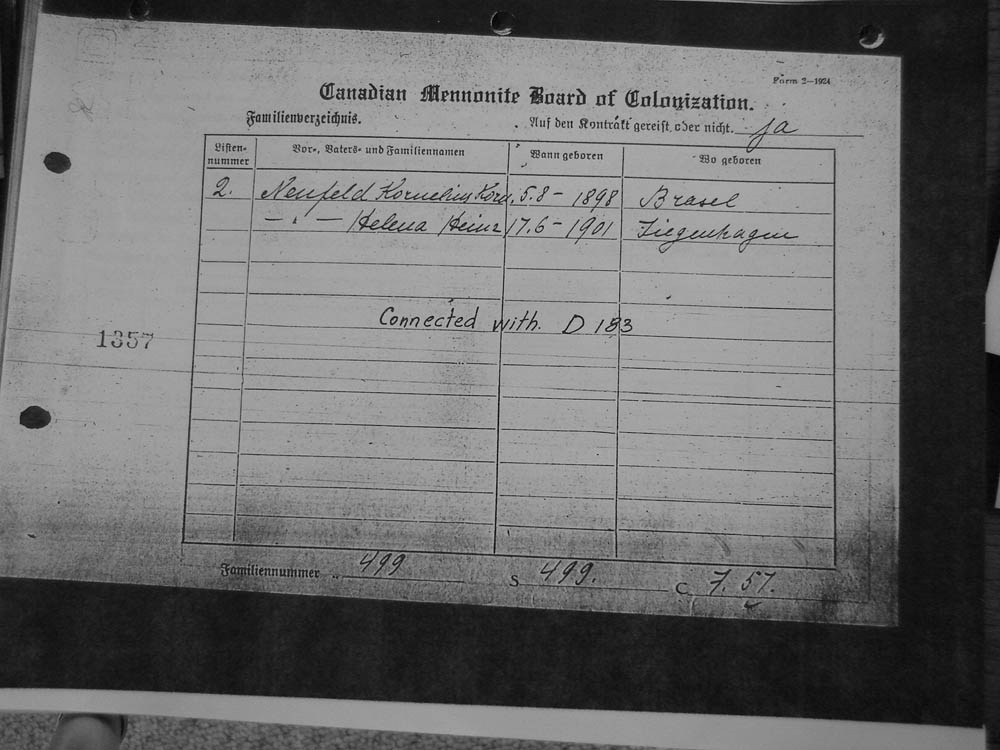 Form 2—1924
Canadian Mennonite Board of Colonization.
Familienverzeichnis.
Auf den Kontrakt gereist oder nicht. ja
Listen-nummer Vor-, Vaters- und Familiennamen Wann geboren Wo geboren
2. Neufeld Kornelius Korn. 5.8 - 1898 Brasel
— " — Helena Heinr 17.6 - 1901 Ziegenhagen
Connected with. D 183
1357
Familiennummer 499 S 499. C 7.57.